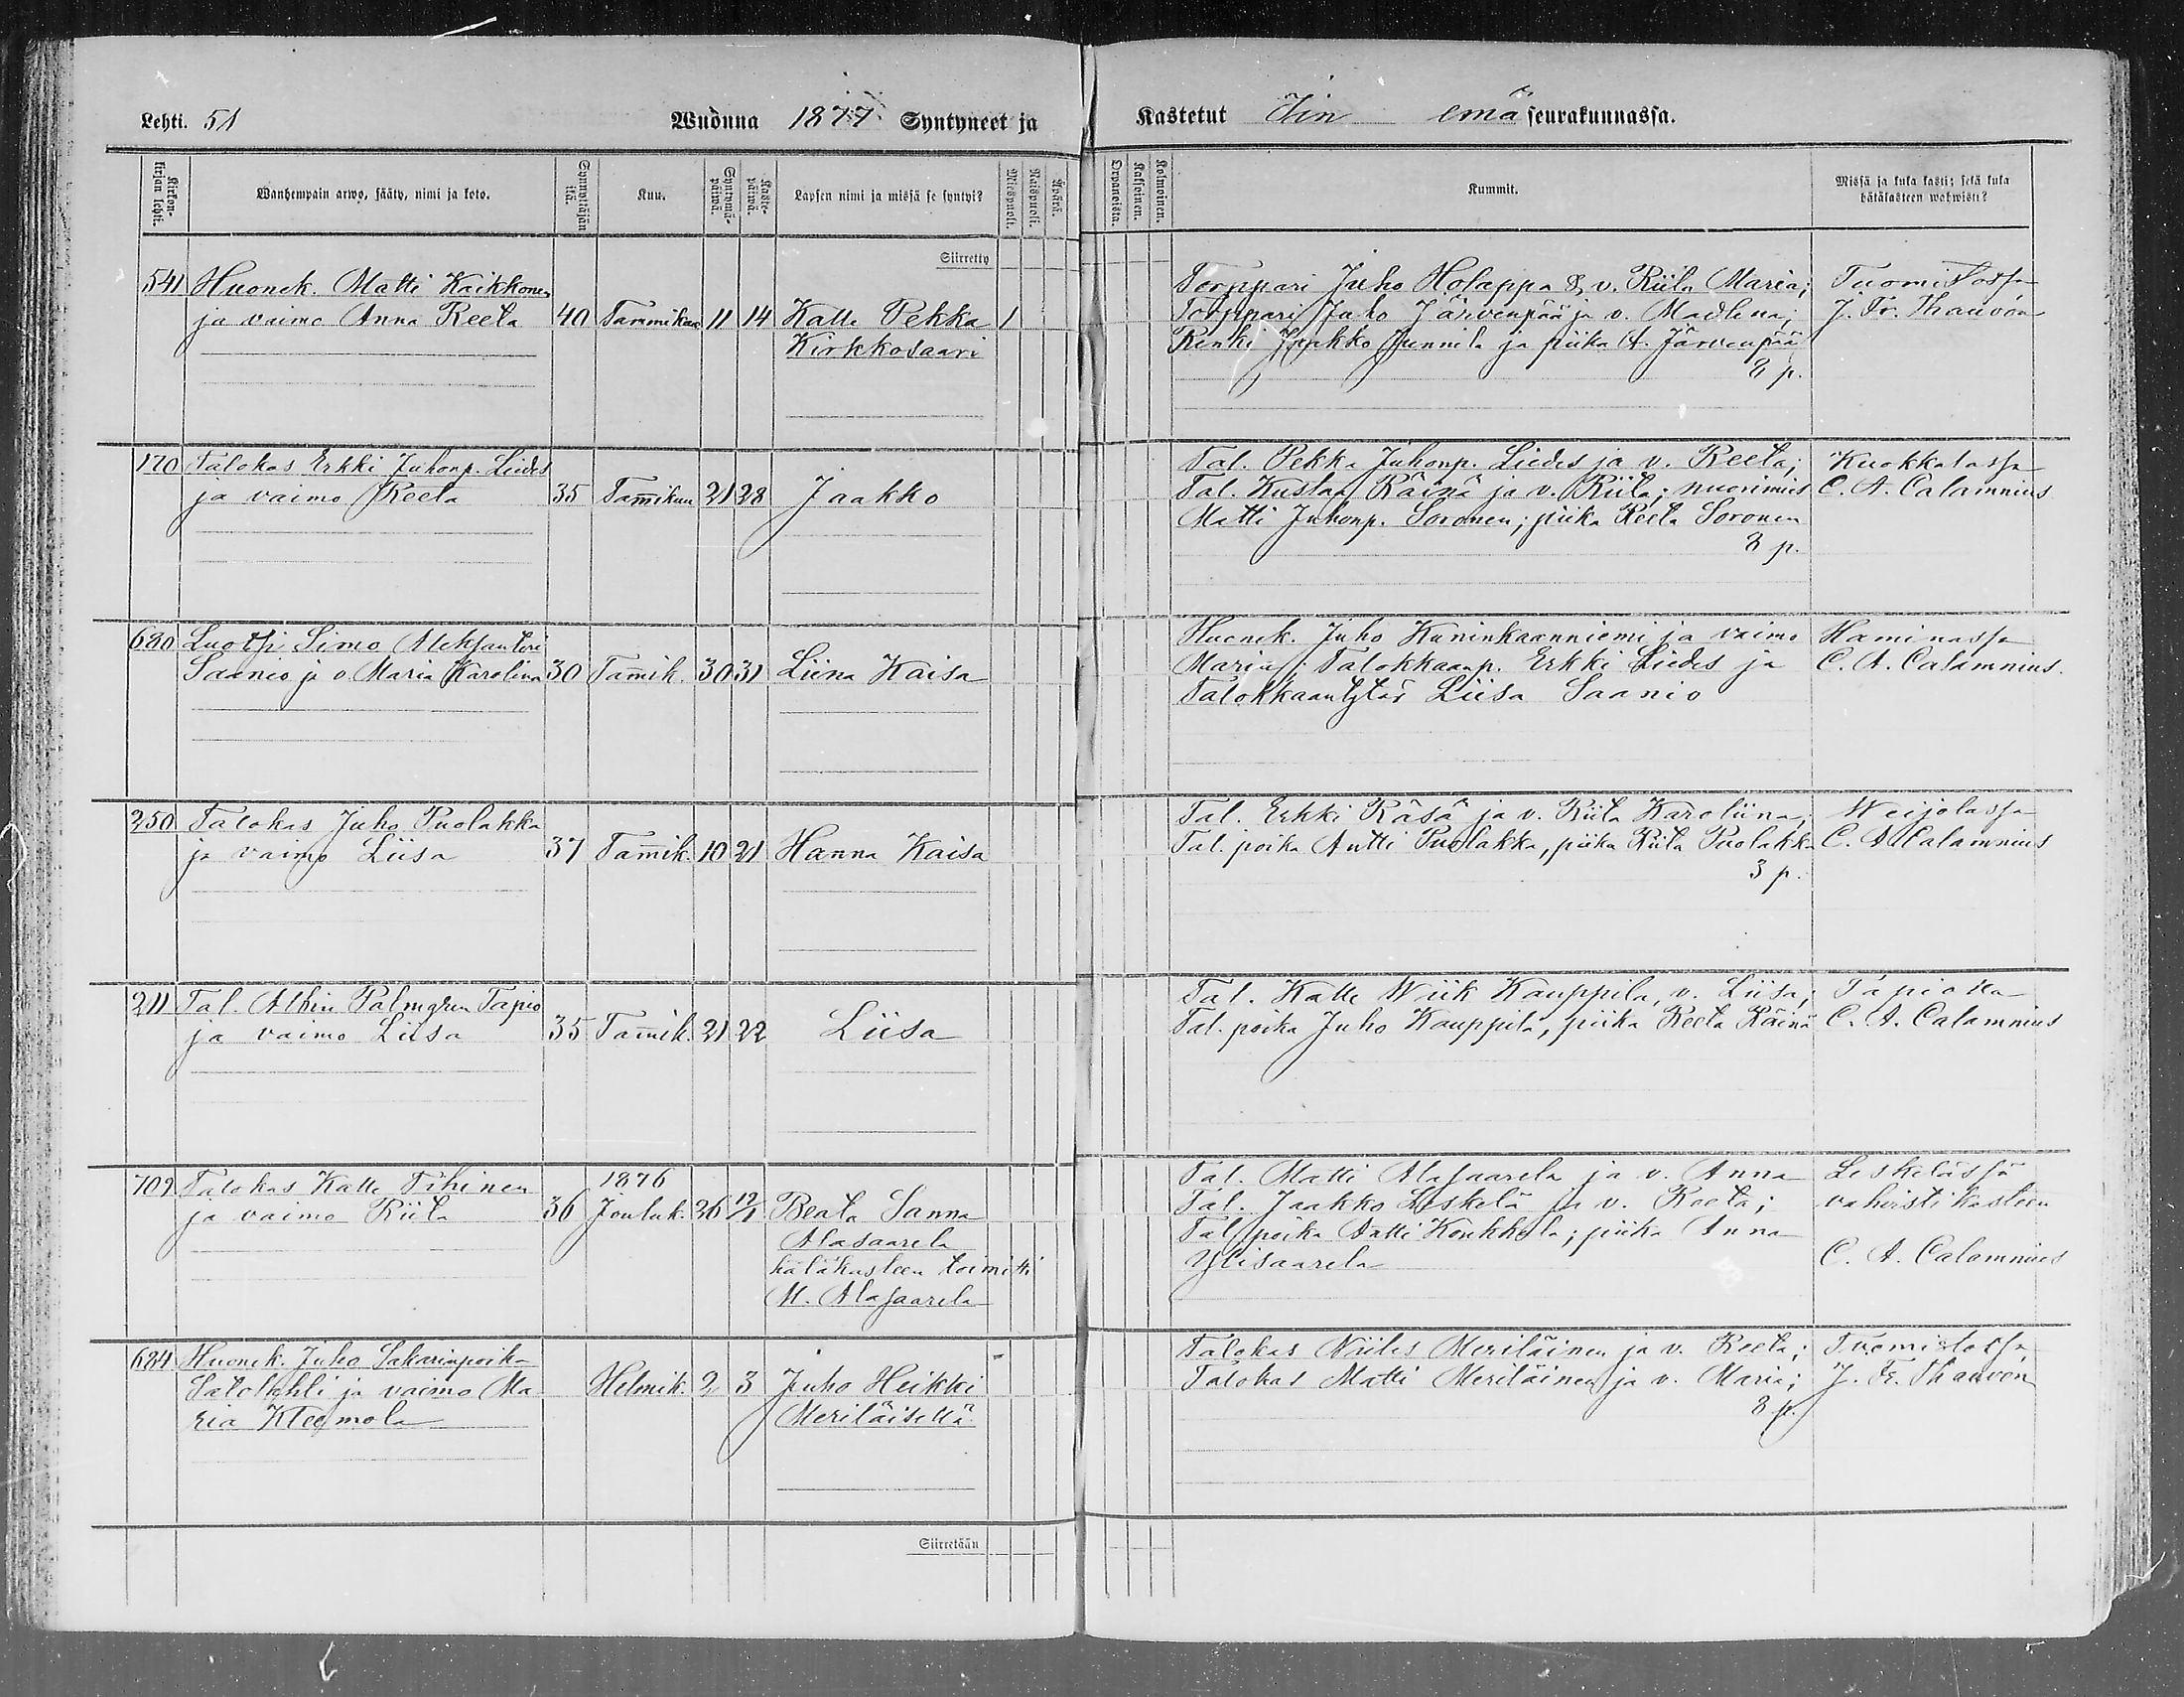 Lehti. 51 Wuonna 1877 Syntyneet ja Kastetut Iin emä seurakunnassa.
Kirkon-kirjan lehti. Wanhempain arwo, sääty, nimi ja koto. Synnyttäjän ikä. Kuu. Syntymä-päivä. Kaste-päivä. Lapsen nimi ja missä se syntyi? Miespuoli. Naispuoli. Äpärä. Orpanoista. Kaksoinen. Kolmoinen. Kummit. Missä ja kuka kasti; sekä kuka hätäkasteen wahwisti?
Siirretty
541 Huonek. Matti Kaikkonen
ja vaimo Anna Reeta 40 Tammikuu 11 14 Kalle Pekka 1
Kirkkosaari
Torppari Juho Holappa & v. Riita Maria; Tuomilassa
Torppari Juho Järvenpää ja v. Madlena; J. Fr. Thauvón
Renki Jaakko Junnila ja piika A. Järvenpää
8 p.
170 Talokas Erkki Juhonp. Liedes
ja vaimo Reeta 35 Tam̅ikuu 21 28 Jaakko
Tal. Pekka Juhonp. Liedes ja v. Reeta; Kuokkalassa
Tal. Kustaa Räinä ja v. Riita; nuorimies C. A. Calamnius
Matti Juhonp. Soronen; piika Reeta Soronen
8 p.
680 Luotsi Simo Aleksanteri
Saanio ja v. Maria Karolina 30 Tam̅ik. 30 31 Liina Kaisa
Huonek. Juho Kuninkaanniemi ja vaimo Haminassa
Maria; Talokkaanp. Erkki Liedes ja C. A. Calamnius.
Talokkaantytär Liisa Saanio
250 Talokas Juho Puolakka
ja vaimo Liisa 37 Tam̅ik. 10 21 Hanna Kaisa
Tal. Erkki Räsä ja v. Riita Karoliina; Weijolassa
Tal. poika Antti Puolakka, piika Riita Puolakka C. A Calamnius
3 p.
211 Tal. Albin Palmgren Tapio
ja vaimo Liisa 35 Tam̅ik. 21 22 Liisa
Tal. Kalle Wiik Kauppila, v. Liisa; Tapiolla
Tal. poika Juho Kauppila, piika Reeta Räinä C. A. Calamnius
709 Talokas Kalle Tihinen 1876
ja vaimo Riita 36 Jouluk. 26 12/1 Beata Sanna
Alasaarela
hätäkasteen toimitti
M. Alasaarela
Tal. Matti Alasaarela ja v. Anna Leskelässä
Tal. Jaakko Leskelä ja v. Reeta; vahvisti kasteen
Tal. poika Antti Konkkola; piika Anna
Ylisaarela C. A. Calamnius
684 Huonek. Juho Sakarinpoika
Satokähli ja vaimo Ma Helmik. 2 3 Juho Heikki
ria Kleemola Meriläisellä
Talokas Niiles Meriläinen ja v. Reeta; Tuomilassa
Talokas Matti Meriläinen ja v. Maria; J. Fr. Thauvón
8 p.
Siirretään